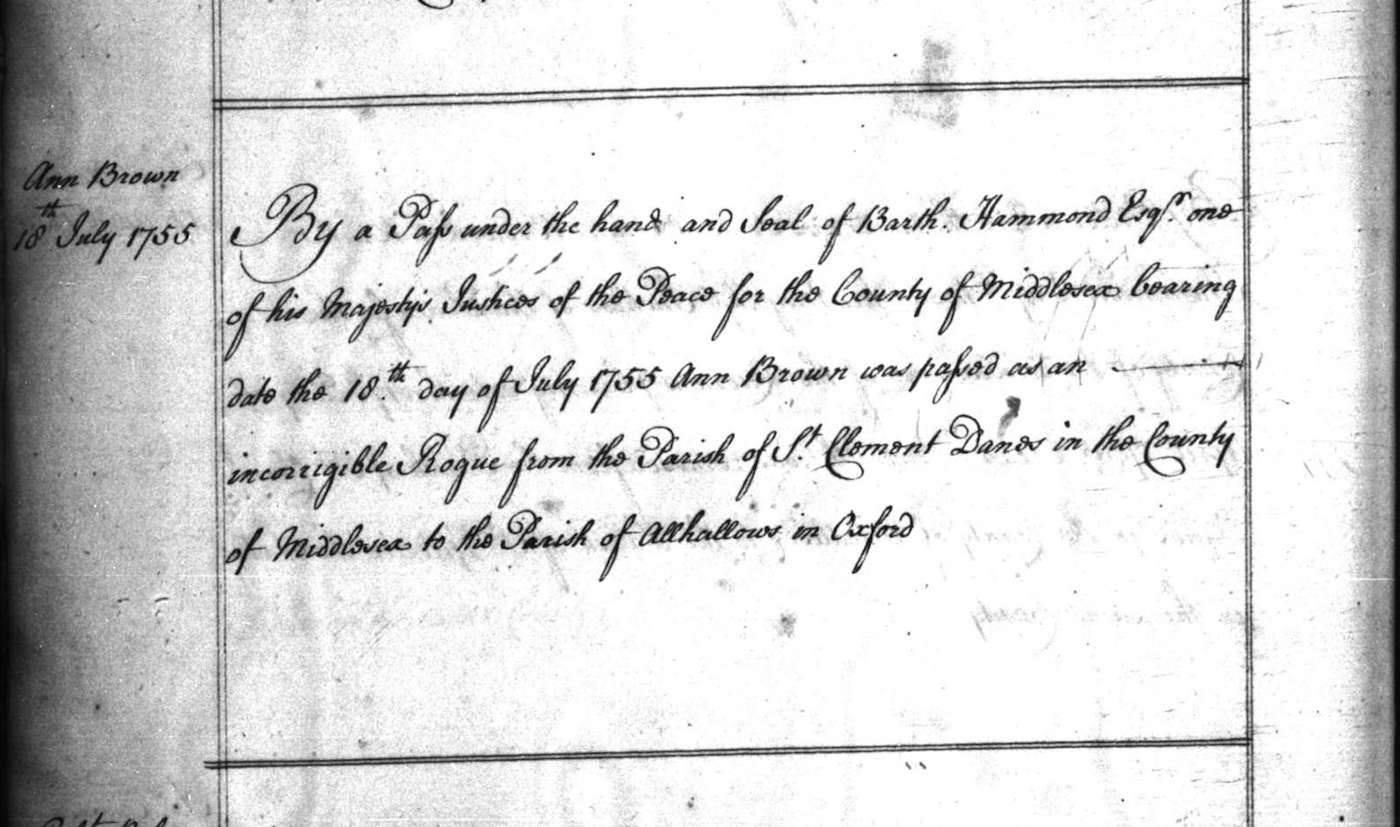 Ann Brown
18th July 1755
By a Pass under the hand and Seal of Barth. Hammond Esqr. one
of his Majesty's Justices of the Peace for the County of Middlesex bearing
date the 18th day of July 1755 Ann Brown was passed as an
incorrigible Rogue from the Parish of St. Clement Danes in the County
of Middlesex to the Parish of Allhallows in Oxford